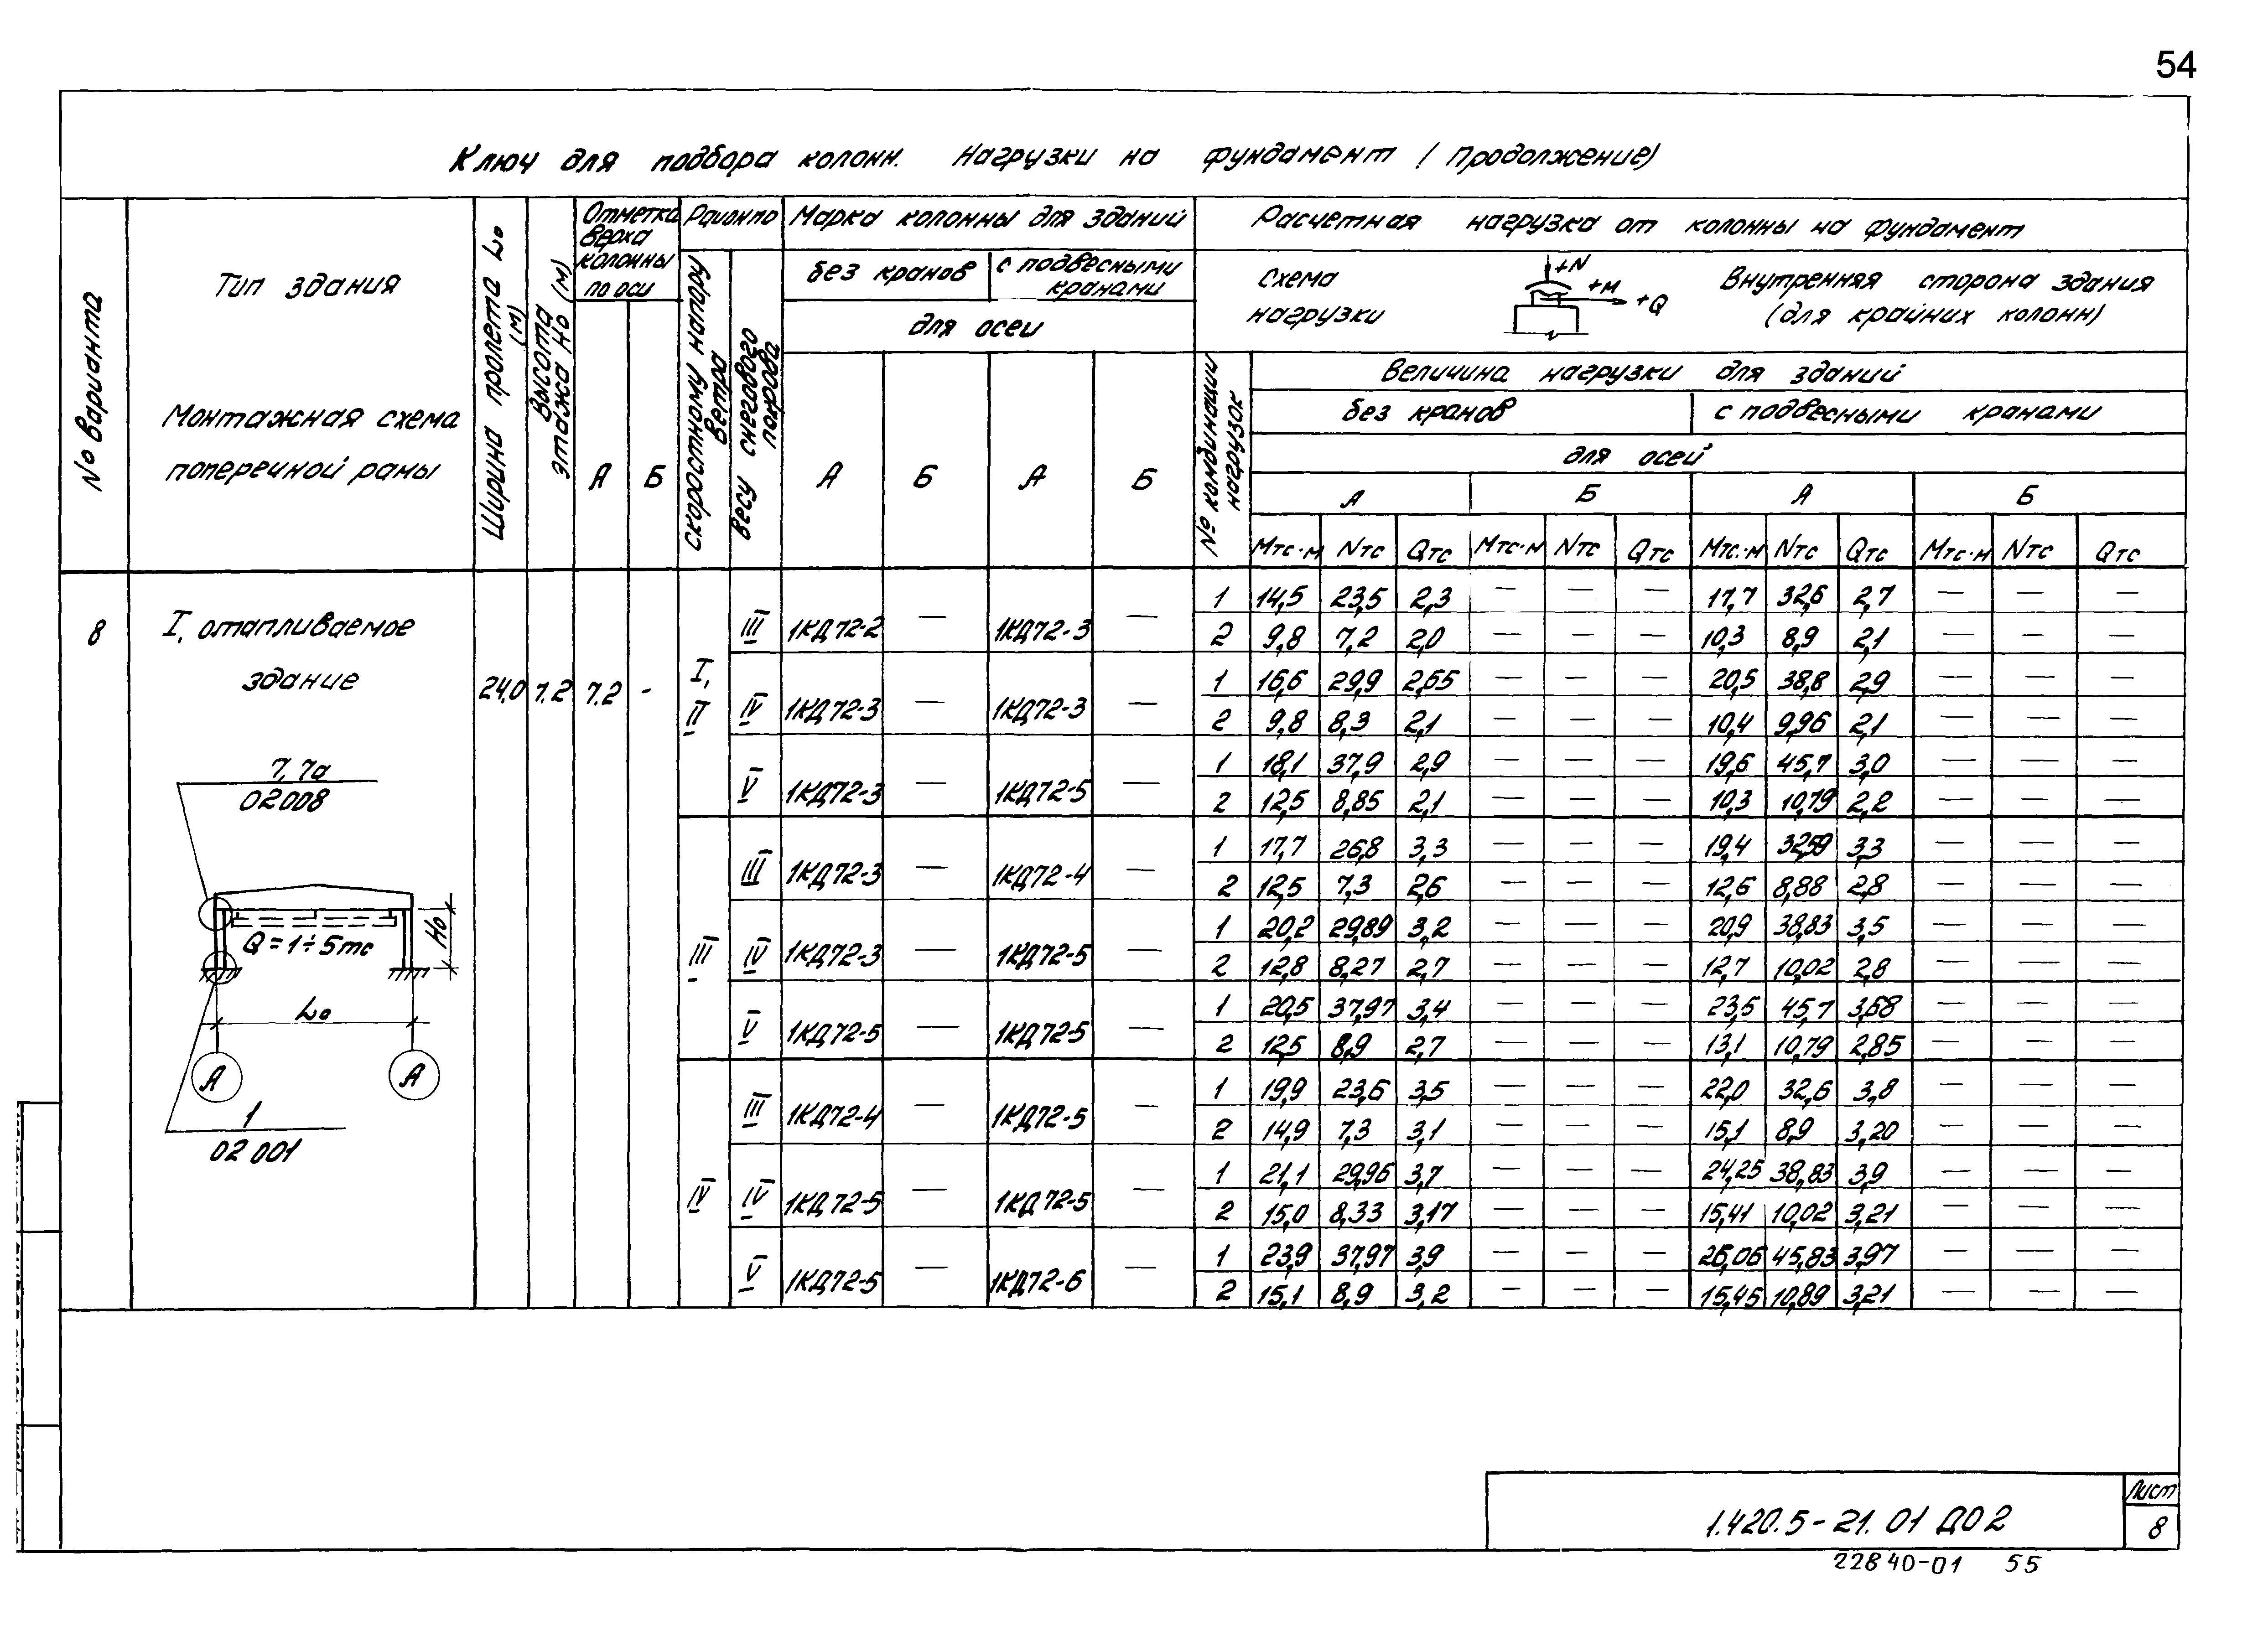 54
Ключ для подбора колонн. Нагрузки на фундамент (Продолжение)
№ варианта
Тип здания
Монтажная схема
поперечной рамы
Ширина пролета Lо (м)
Высота этажа Hо (м)
Отметка верха колонны по оси
А Б
Район по
Скоростному напору ветра
Весу снегового покрова
Марка колонны для зданий
без кранов с подвесными кранами
для осей
А Б А Б
Расчетная нагрузка от колонны на фундамент
Схема нагрузки
+N
+M
+Q
Внутренняя сторона здания
(для крайних колонн)
№ комбинации нагрузок
Величина нагрузки для зданий
без кранов с подвесными кранами
для осей
А Б А Б
Mтс·м Nтс Qтс Mтс·м Nтс Qтс Mтс·м Nтс Qтс Mтс·м Nтс Qтс
8 I, отапливаемое
здание
24,0 7.2 7.2 -
I, II
III 1КД72-2 — 1КД72-3 —
1 14,5 23,5 2,3 — — — 17,7 32,6 2,7 — — —
2 9,8 7,2 2,0 — — — 10,3 8,9 2,1 — — —
IV 1КД72-3 — 1КД72-3 —
1 16,6 29,9 2,65 — — — 20,5 38,8 2,9 — — —
2 9,8 8,3 2,1 — — — 10,4 9,96 2,1 — — —
V 1КД72-3 — 1КД72-5 —
1 18,1 37,9 2,9 — — — 19,6 45,7 3,0 — — —
2 12,5 8,85 2,1 — — — 10,3 10,79 2,2 — — —
III
III 1КД72-3 — 1КД72-4 —
1 17,7 26,8 3,3 — — — 19,4 32,59 3,3 — — —
2 12,5 7,3 2,6 — — — 12,6 8,88 2,8 — — —
IV 1КД72-3 — 1КД72-5 —
1 20,2 29,89 3,2 — — — 20,9 38,83 3,5 — — —
2 12,8 8,27 2,7 — — — 12,7 10,02 2,8 — — —
V 1КД72-5 — 1КД72-5 —
1 20,5 37,97 3,4 — — — 23,5 45,7 3,68 — — —
2 12,5 8,9 2,7 — — — 13,1 10,79 2,85 — — —
IV
III 1КД72-4 — 1КД72-5 —
1 19,9 23,6 3,5 — — — 22,0 32,6 3,8 — — —
2 14,9 7,3 3,1 — — — 15,1 8,9 3,20 — — —
IV 1КД72-5 — 1КД72-5 —
1 21,1 29,96 3,7 — — — 24,25 38,83 3,9 — — —
2 15,0 8,33 3,17 — — — 15,41 10,02 3,21 — — —
V 1КД72-5 — 1КД72-6 —
1 23,9 37,97 3,9 — — — 26,06 45,83 3,97 — — —
2 15,1 8,9 3,2 — — — 15,45 10,89 3,21 — — —
7, 7а
02008
Q = 1÷5тс
Hо
Lо
А А
1
02 001
1.420.5-21.01 Д02
Лист
8
22840-01 55